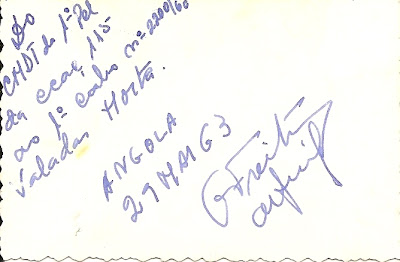 Do
CMDT do 1º Pel
da ccaç 115
ao 1º cabo nº 2200/60
Valadas Horta.
ANGOLA
29 MAI 63
Freitas